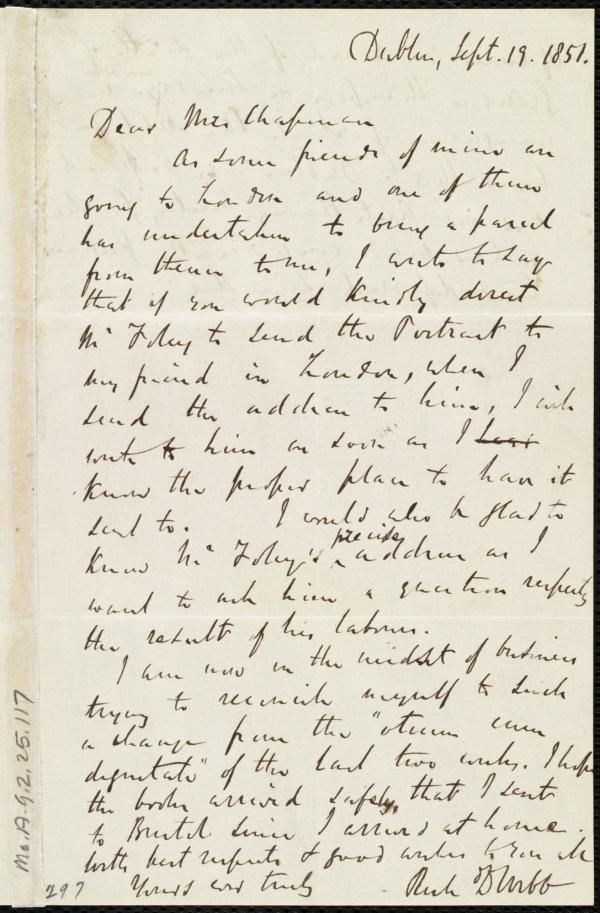 Dublin, Sept. 19. 1851.
Dear Mrs Chapman
As some friends of mine are
going to London and one of them
has undertaken to bring a parcel
from thence to me, I write to say
that if you would kindly direct
Mr Foley to send the Portrait to
my friend in London, when I
send the address to him, I will
write to him as soon as I hear
know the proper place to have it
sent to. I would also be glad to
know Mr Foley's precise address as I
want to ask him a question respectg
the result of his labours.
I am now in the midst of business
trying to reconcile myself to such
a change from the "otium cum
dignitate" of the last two weeks. I hope
the books arrived safely, that I sent
to Bristol since I arrived at home.
With best respects & good wishes to you all
Yours ever truly Richd D Webb
Ms.A.9.2.25.117
297